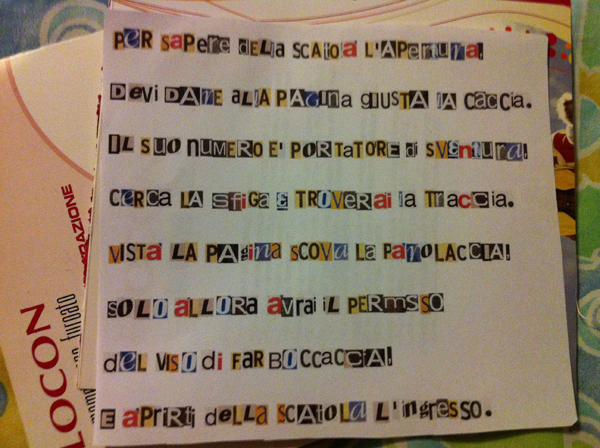 PER SAPERE DELLA SCATOLA L'APERTURA,
DEVI DARE ALLA PAGINA GIUSTA LA CACCIA.
IL SUO NUMERO E' PORTATORE DI SVENTURA,
CERCA LA SFIGA E TROVERAI LA TRACCIA.
VISTA LA PAGINA SCOVA LA PAROLACCIA!
SOLO ALLORA AVRAI IL PERMSSO
DEL VISO DI FAR BOCCACCIA!
E APRIRTI DELLA SCATOLA L'INGRESSO.
LOCON